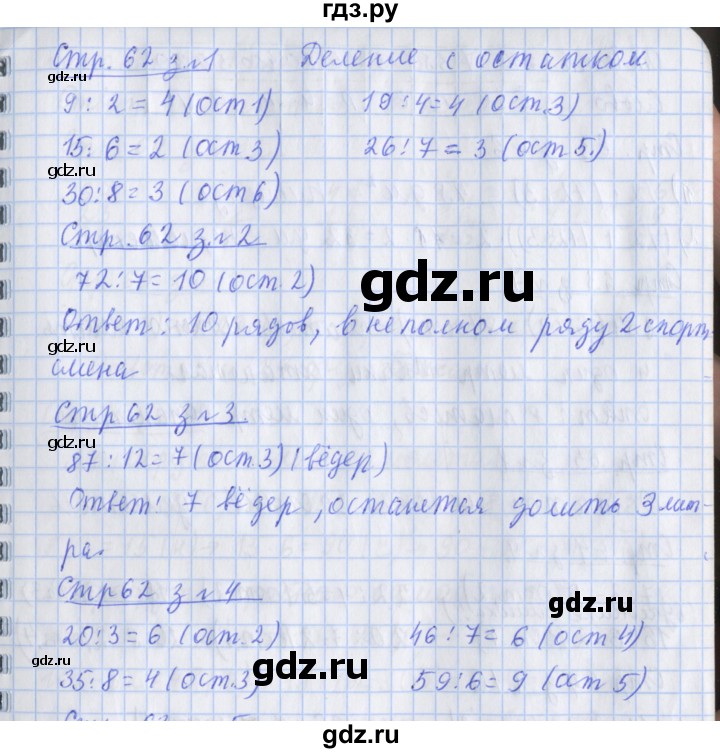 гдз.ру
Стр. 62 з. 1 Деление с остатком.
gdz.ru
9 : 2 = 4 (ост 1) 19 : 4 = 4 (ост. 3)
15 : 6 = 2 (ост. 3) 26 : 7 = 3 (ост 5.)
gdz.ru
30 : 8 = 3 (ост 6)
Стр. 62 з. 2
gdz.ru
72 : 7 = 10 (ост. 2)
Ответ : 10 рядов, в неполном ряду 2 спорт-
gdz.ru
смена
Стр 62 з 3
87 : 12 = 7 (ост. 3) (вёдер)
gdz.ru
Ответ : 7 вёдер, останется долить 3 лит-
ра.
gdz.ru
Стр 62 з 4
gdz.ru
20 : 3 = 6 (ост. 2) 46 : 7 = 6 (ост 4)
gdz.ru
gdz.ru
35 : 8 = 4 (ост. 3) 59 : 6 = 9 (ост 5)
gdz.ru